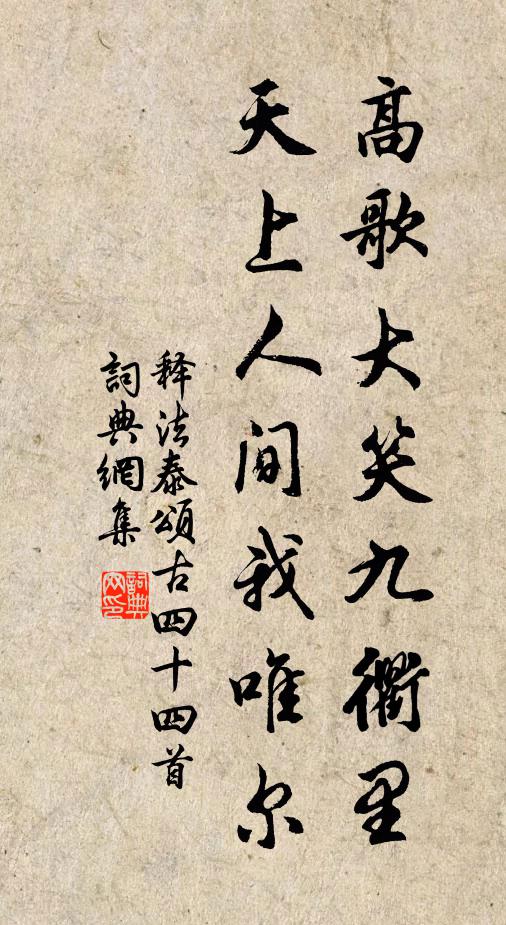 高歌大笑九衢里
天上人间我唯尔
释法泰頌古四十四首
詞典網集
詞典网印